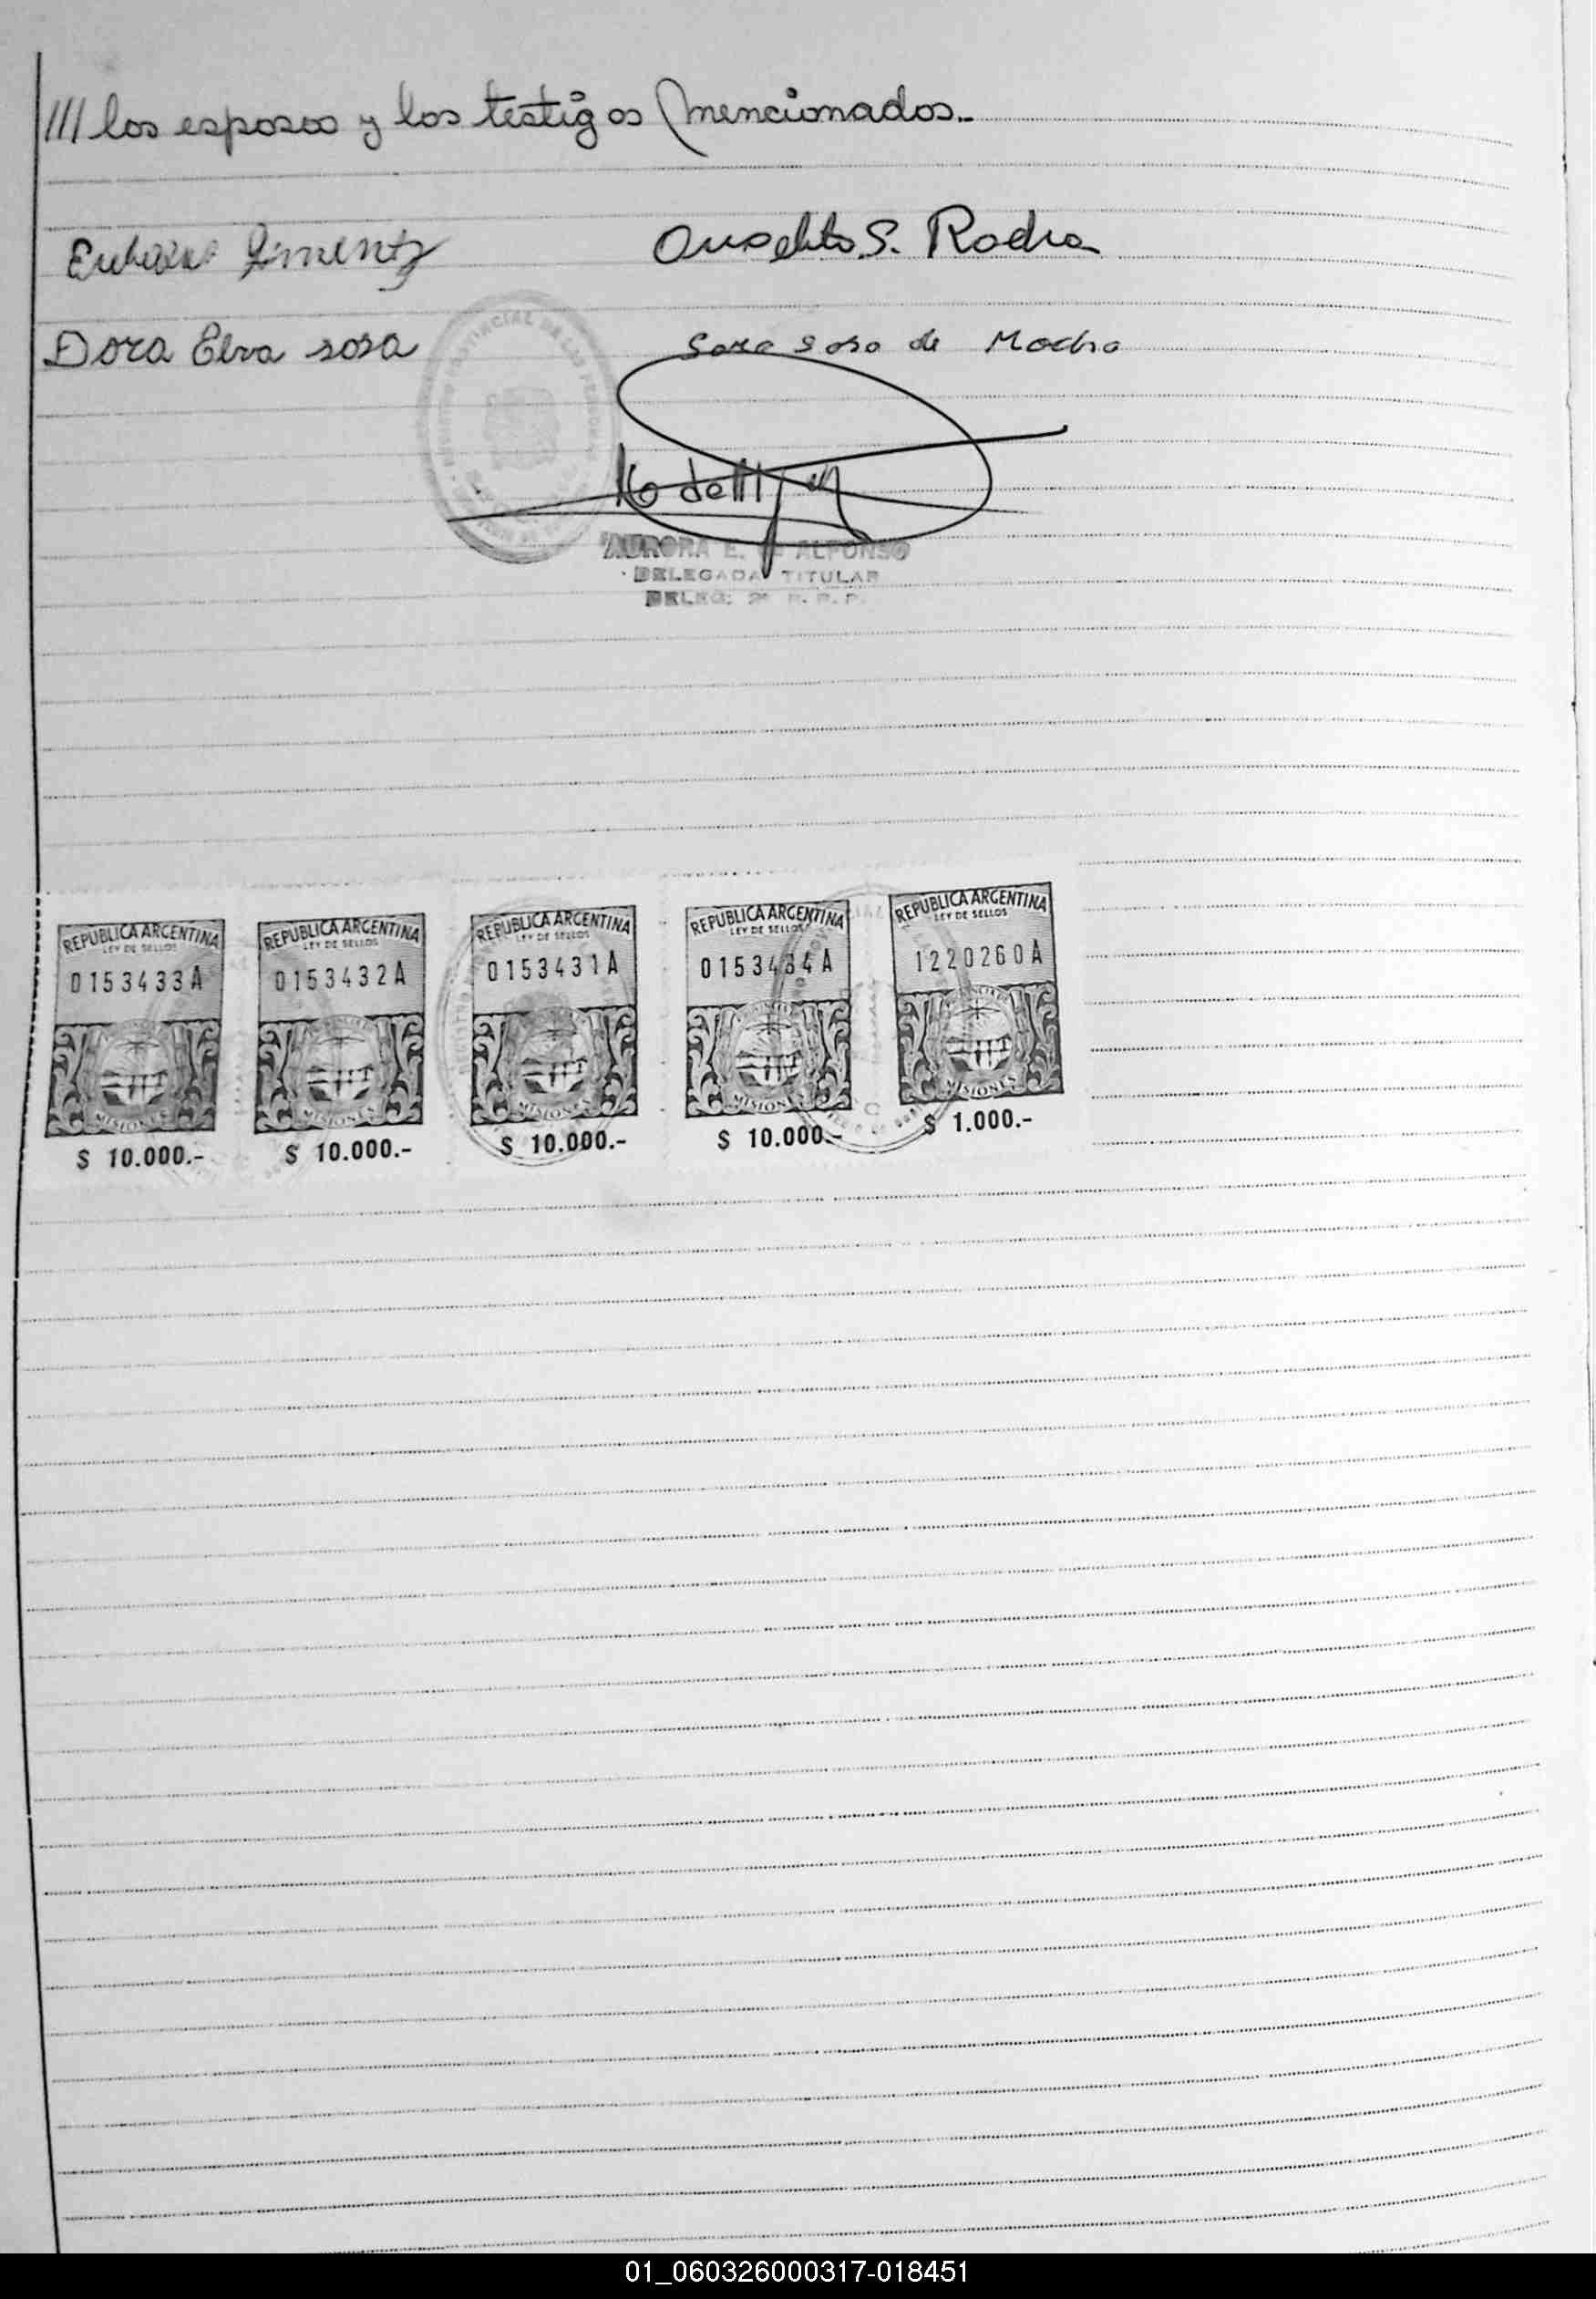 /// los esposos y los testigos mencionados.-
Dora Elva sosa
Sara Sosa de
AURORA E. ALFONSO
DELEGADA TITULAR
DELEG:
REPUBLICA ARGENTINA
LEY DE SELLOS
0153433A
MISIONES
$ 10.000.-
REPUBLICA ARGENTINA
LEY DE SELLOS
0153432A
MISIONES
$ 10.000.-
REPUBLICA ARGENTINA
LEY DE SELLOS
0153431A
MISIONES
$ 10.000.-
REPUBLICA ARGENTINA
LEY DE SELLOS
0153434A
MISIONES
$ 10.000.-
REPUBLICA ARGENTINA
LEY DE SELLOS
1220260A
MISIONES
$ 1.000.-
01_060326000317-018451